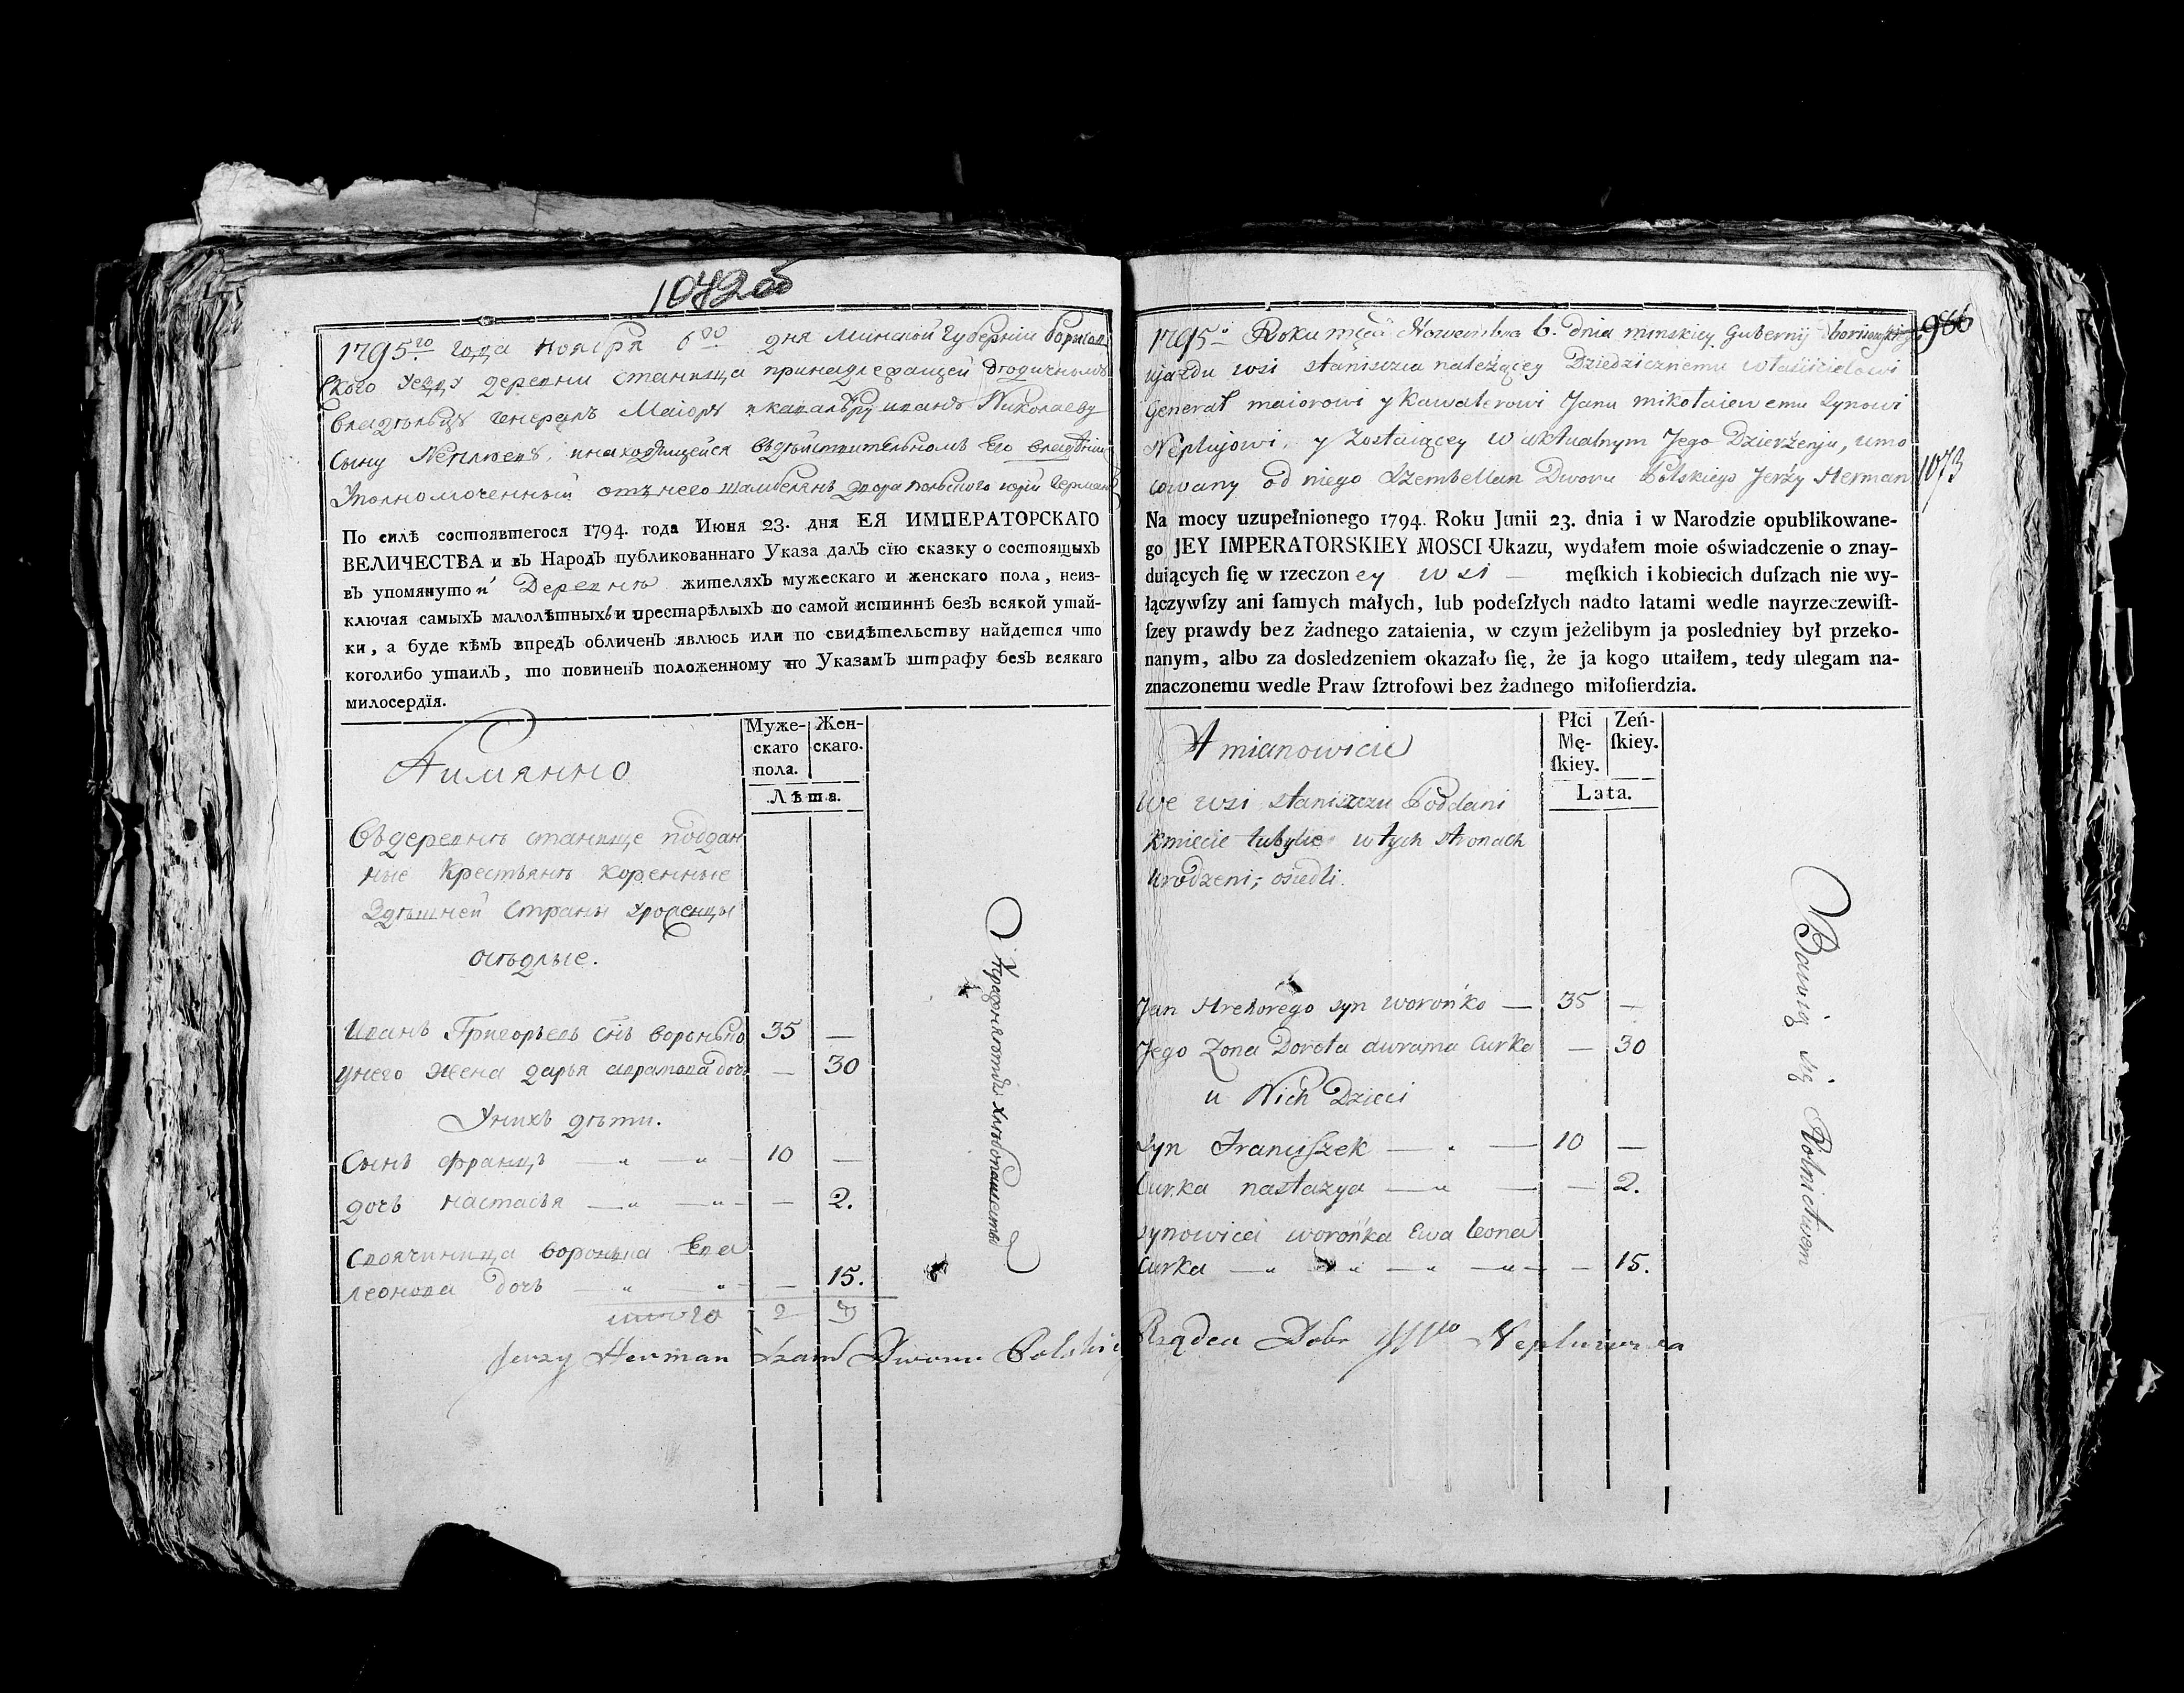 1072об
1795.го года Ноября 6го дня Минской Губернии Борисов
ского уезду деревни станища принадлежащей
владѣльцу Генералъ Маіору и кавалѣру Ивану Николаеву
Сыну Неплюеву, инаходящейся въдѣйствительномъ Его владѣнии
Уполномоченный отънего шамбелянъ двора польского юрій Германъ
По силѣ состоявшегося 1794. года Июня 23. дня ЕЯ ИМПЕРАТОРСКАГО
ВЕЛИЧЕСТВА и въ Народъ публикованнаго Указа далъ сїю сказку о состоящыхъ
въ упомянутой Деревнѣ жителяхъ мужескаго и женскаго пола, неиз-
ключая самыхъ малолѣтныхъ и престарѣлыхъ по самой истиннѣ безъ всякой утай-
ки, а буде кѣмъ впредъ обличенъ явлюсь или по свидѣтельству найдется что
коголибо утаилъ, то повиненъ положенному по Указамъ штрафу безъ всякаго
милосердїя.
Аимянно
Муже-
скаго
пола.
Жен-
скаго.
Лѣта.
Въдеревнѣ станище поддан
ные Крестьянѣ коренные
Здѣшней Страны уроженцы
осѣдлые.
Иванъ Григорьевъ Снъ воронько 35 —
унего жена дарья аврамова дочь — 30
Унихъ дѣти.
Сынъ францъ — „ — „ — 10 —
дочь настасья — „ — „ — — 2.
воронька Ева
леонова дочь — „ — „ — — 15.
итого 2 3
Jerzy Herman Szamb Dworu Polskie
Упражняются хлѣбопашествомъ
966
1073
1795o Roku mca Nowembra 6. dnia minskiey Gubernij borisowskiego
ujazdu wsi staniszcza należącey Dziedzicznemu właścicielowi
Generał maiorowi y Kawalerowi Janu mikołaiewemu Synowi
Neplujowi, y zostaiącey w aktualnym Jego Dzierżeniu, umo
cowany od niego Szembellan Dworu Polskiego Jerży Herman
Na mocy uzupełnionego 1794. Roku Junii 23. dnia i w Narodzie opublikowane-
go JEY IMPERATORSKIEY MOSCI Ukazu, wydałem moie oświadczenie o znay-
duiących ſię w rzeczoney wsi — męſkich i kobiecich duſzach nie wy-
łączywſzy ani ſamych małych, lub podeſzłych nadto latami wedle nayrzeczewiſt-
ſzey prawdy bez żadnego zataienia, w czym jeżelibym ja posledniey był przeko-
nanym, albo za dosledzeniem okazało ſię, że ja kogo utaiłem, tedy ulegam na-
znaczonemu wedle Praw ſztrofowi bez żadnego miłoſierdzia.
A mianowicie
Płci
Mę-
ſkiey.
Zeń-
ſkiey.
Lata.
we wsi staniszczu Poddani
kmiecie tubylie w tych stronach
urodzeni, osiedli.
Jan Hrehorego syn woronko — 35 —
Jego Zona Dorota awrama Curka — 30
u Nich Dzieci
Syn Franciſzek — „ — 10 —
Curka nastazya — „ — — 2.
Synowica worońka Ewa leona
Curka — „ „ — „ — „ — — 15.
Rządca Dobr Nepluiewa
Bawią się Rolnictwem